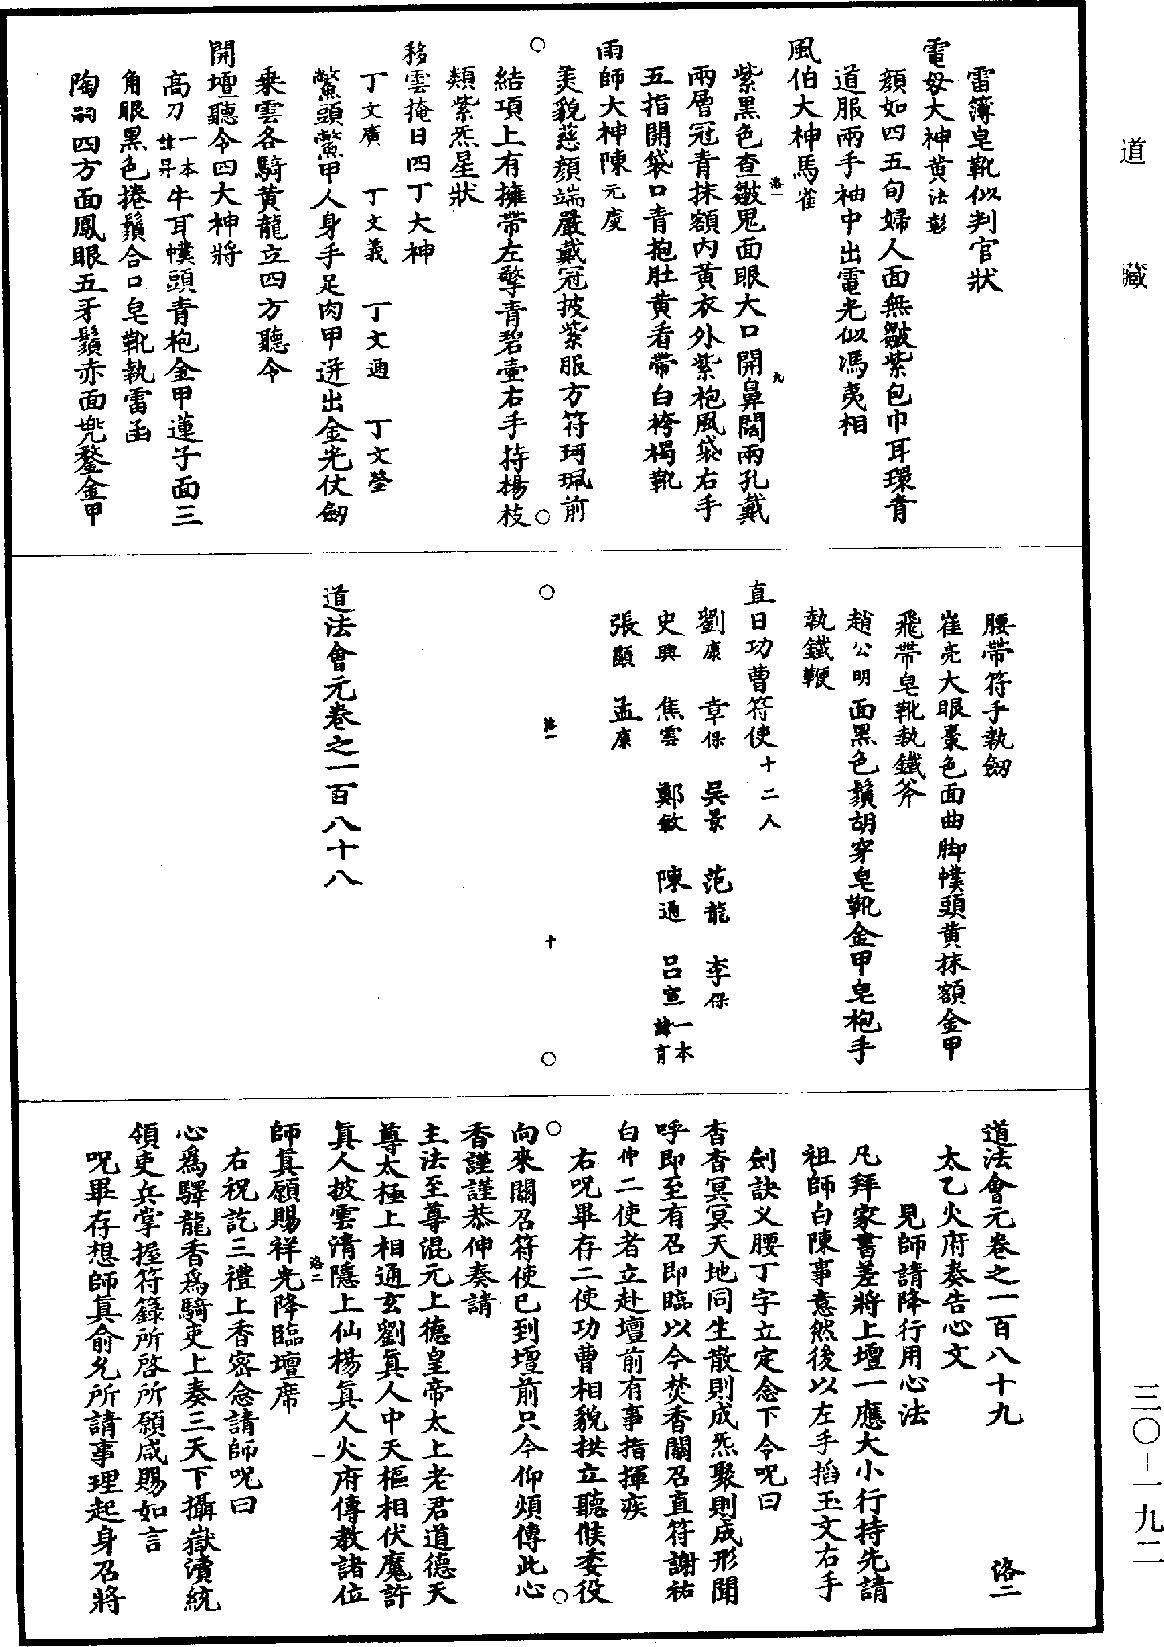 道藏
雷簿皂靴似判官狀
電母大神黄法彰
顔如四五旬婦人面無皺紫包巾耳環青
道服兩手袖中出電光似馮夷相
風伯大神馬雀
紫黑色查皺鬼面眼大口開鼻闊兩孔戴
兩層冠青抹額内黄衣外紫袍風袋右手
五指開袋口青抱肚黄看帶白袴褐靴
雨師大神陳元度
美貌慈顔端嚴戴冠披紫服方符珂珮前
結項上有擁帶左擎青碧壷右手持楊枝
類紫炁星狀
移雲掩日四丁大神
丁文廣 丁文義 丁文通 丁文瑩
鱉頭鱉甲人身手足肉甲迸出金光仗劒
乘雲各騎黄龍立四方聽令
開壇聽令四大神將
高刀一本牛耳幞頭青袍金甲蓮子面三
角眼黑色捲鬚合口皂靴執雷函
陶四方面鳳眼五牙鬚赤面兠鍪金甲
腰帶符手執劒
崔亮大眼棗色面曲脚幞頭黄抹額金甲
飛帶皂靴執鐵斧
趙公明面黑色鬚胡穿皂靴金甲皂袍手
執鐵鞭
直日功曹符使十二人
劉康 章保 吴景 范龍 李保
史興 焦雲 鄭敏 陳通 吕宣一本
張頤 孟康
洛一 十
道法會元卷之一百八十八
道法會元卷之一百八十九 洛二
太乙火府奏告心文
見師請降行用心法
凡拜家書差將上壇一應大小行持先請
祖師白陳事意然後以左手掐玉文右手
劍訣义腰丁字立定念下令呪曰
杳杳冥冥天地同生散則成炁聚則成形聞
呼即至有召即臨以今焚香關召直符謝祐
白仲二使者立赴壇前有事指揮疾
右呪畢存二使功曹相貌拱立聽候委役
向來關召符使已到壇前只今仰煩傳此心
香謹謹恭伸奏請
主法至尊混元上德皇帝太上老君道德天
尊太極上相通玄劉真人中天樞相伏魔許
真人披雲清隱上仙楊真人火府傳教諸位
師真願賜祥光降臨壇席
右祝訖三禮上香密念請師呪曰
心爲驛龍香爲騎吏上奏三天下攝嶽瀆統
領吏兵掌握符籙所啓所願咸賜如言
呪畢存想師真俞允所請事理起身召將
三〇—一九二